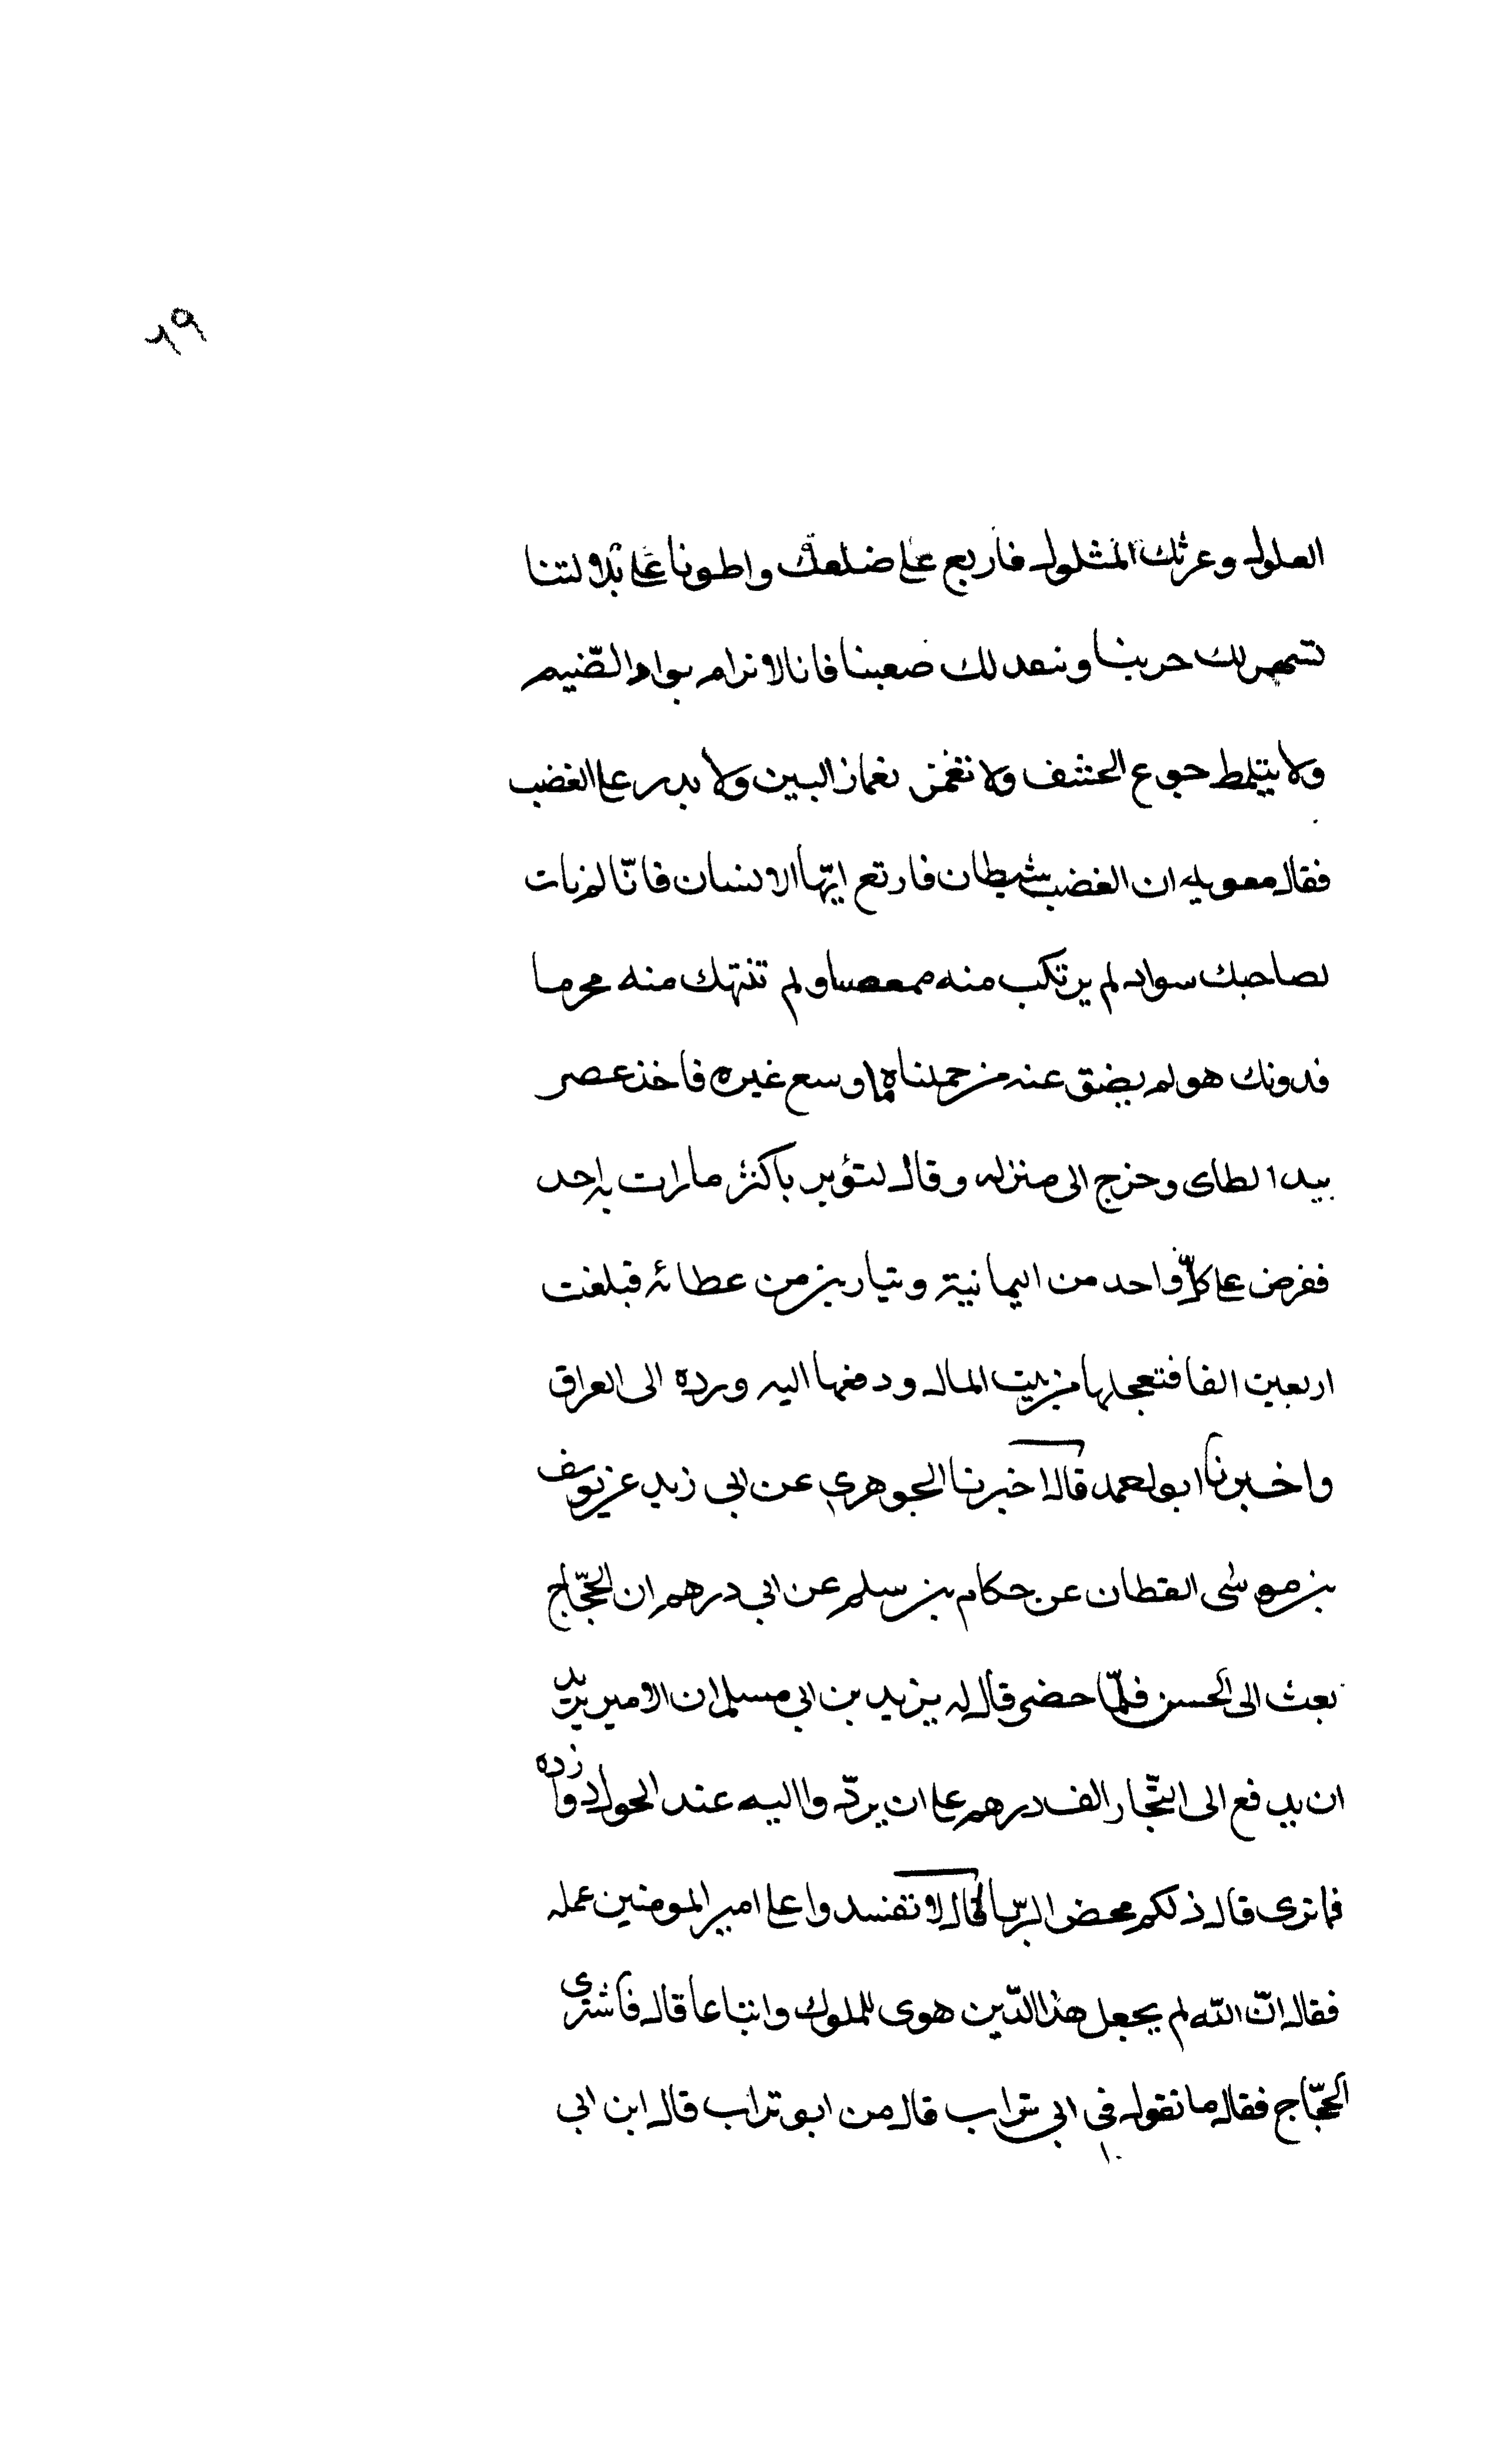 ٦٩
المثلول فاربع على ضلعك واطونا على بلالتنا
لك حربنا لك صعبنا فانا لا نرام
ولا الحشف ولا تغمز تغماز التين ولا على الغضب
فقال معويه ان الغضب شيطان فاربع ايّها الانسان فانّا لم نات
لصاحبك سواد لم يرتكب منه ولم تنتهك منه محرما
فدونك هو لم يضق عنه من حملنا ما وسع غيره فاخذ عصر
بيد الطاى وخرج الى منزله وقال لتؤبن باكثر ما ات به احد
ففرض على كلّ واحد من اليمانية دينارين من عطائه فبلغت
اربعين الفا فتعجلها من بيت المال ودفعها اليه ورده الى العراق
واخبرنا ابو احمد قال اخبرنا الجوهرى عن ابى زيد عن يوسف
بن موسى القطان عن حكام بن سلم عن ابى درهم ان الحجّاج
بعث الى الحسن فلمّا حضر قال له يزيد بن ابى مسلم ان الامير يريد
ان يدفع الى التّجار الف درهم على ان يردّوا اليه عند الحول ده دوازده
فما ترى قال ذلكم محض الرّبا قال لا تفسدوا على امير المومنين عمله
فقال انّ الله لم يجعل هذا الدّين هوى للملوك واتباعا قال فاستوى
الحجّاج فقال ما تقول فى ابى تراب قال من ابو تراب قال ابن ابى